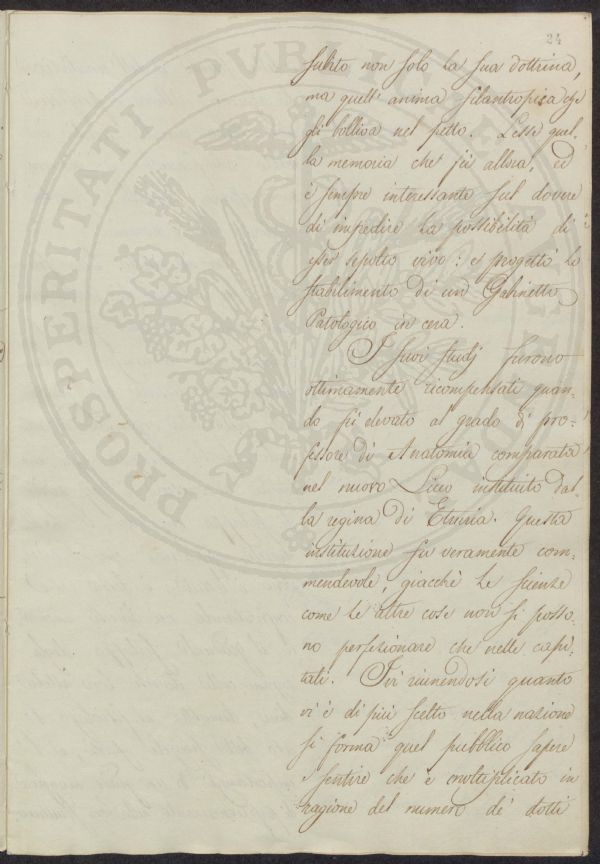 24
subito non solo la sua dottrina,
ma quell' anima filantropica che
gli bolliva nel petto. Lesse quel-
la memoria che fù allora, ed
è sempre interessante sul dovere
di impedire la possibilità di
esser sepolto vivo: e progettò lo
stabilimento di un Gabinetto
Patologico in cera.
I suoi studj furono
ottimamente ricompensati quan-
do fù elevato al grado di pro-
fessore di Anatomia comparata
nel nuovo Liceo instituito dal-
la regina di Etruria. Questa
instituzione fu veramente com-
mendevole, giacchè le scienze
come le altre cose non si posso-
no perfezionare che nelle capi-
tali. Ivi riunendosi quanto
vi è di più scelto nella nazione
si forma quel pubblico sapere
e sentire che è moltiplicato in
ragione del numero de' dotti
PROSPERITATI PUBLICAE